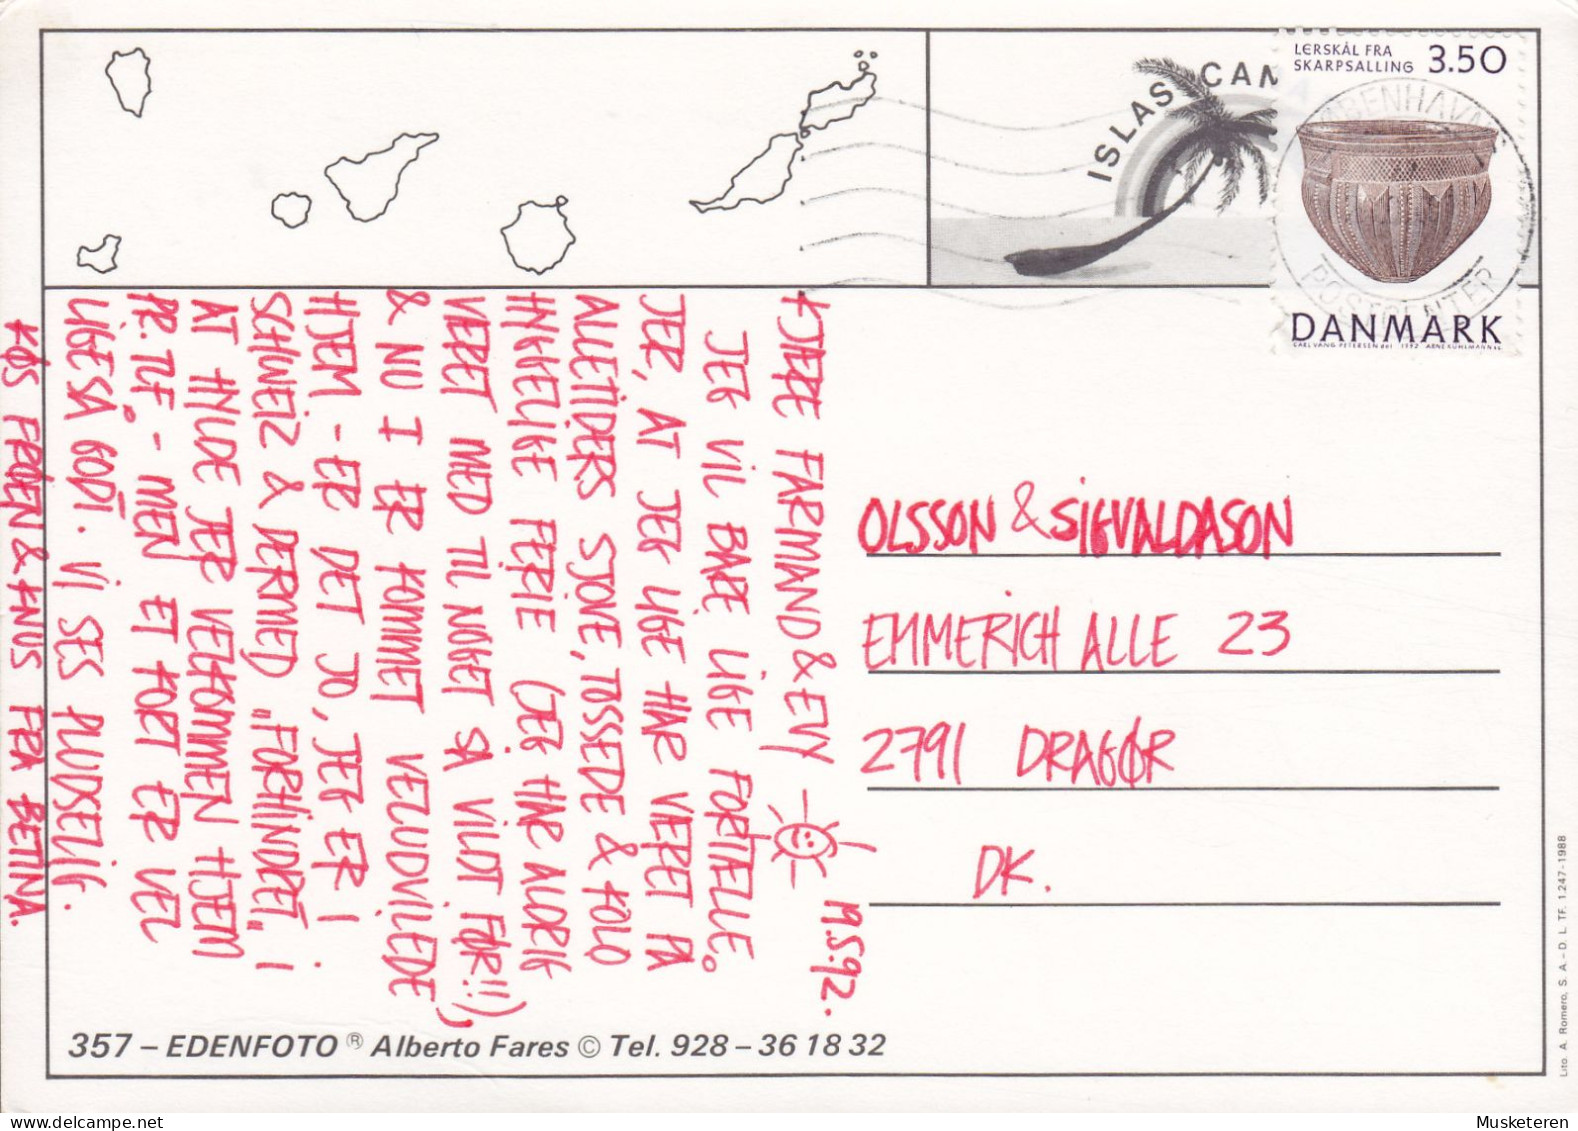 ISLAS CAN
LERSKÅL FRA
SKARPSALLING 3.50
KØBENHAVNS
POSTCENTER
DANMARK
CARL VANG PETERSEN del 1992 ARNE KÜHLMANN sc
KJÆRE FARMAND & EVY
19.5.92.
JEG VIL BARE LIGE FORTÆLLE
JER, AT JEG LIGE HAR VÆRET PÅ
ALLETIDERS SJOVE, TOSSEDE & KOLO
HYGGELIGE FERIE (JEG HAR ALDRIG
VÆRET MED TIL NOGET SÅ VILDT FØR!!),
& NU I ER KOMMET VELUDVILEDE
HJEM - ER DET JO, JEG ER I
SCHWEIZ & DERMED „FORHINDRET„ I
AT HYLDE JER VELKOMMEN HJEM
PR. TLF. - MEN ET KORT ER VEL
LIGE SÅ GODT. VI SES PLUDSELIG.
KØS FRØEN & KNUS FRA BETINA.
OLSSON & SIGVALDASON
EMMERICH ALLE 23
2791 DRAGØR
DK.
357 – EDENFOTO ® Alberto Fares © Tel. 928 – 36 18 32
Lito. A. Romero, S. A. - D. L. TF. 1.247-1988
Musketeren